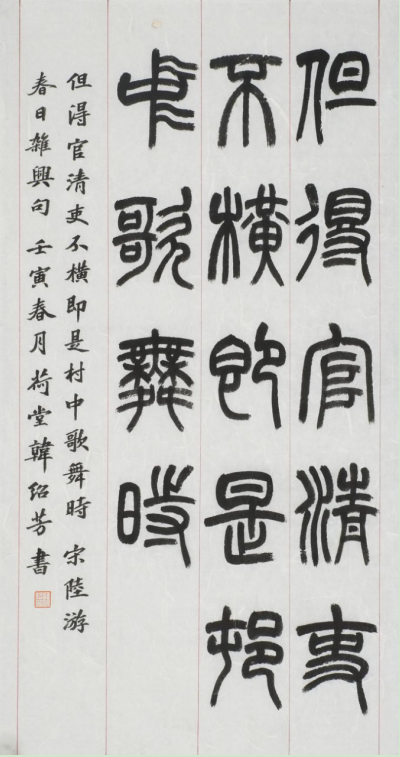 但得官清吏
不橫即是邨
中歌舞時
但淂官清吏不橫即是村中歌舞時 宋陸游
春日雜興句 壬寅春月荷堂韓紹芳書